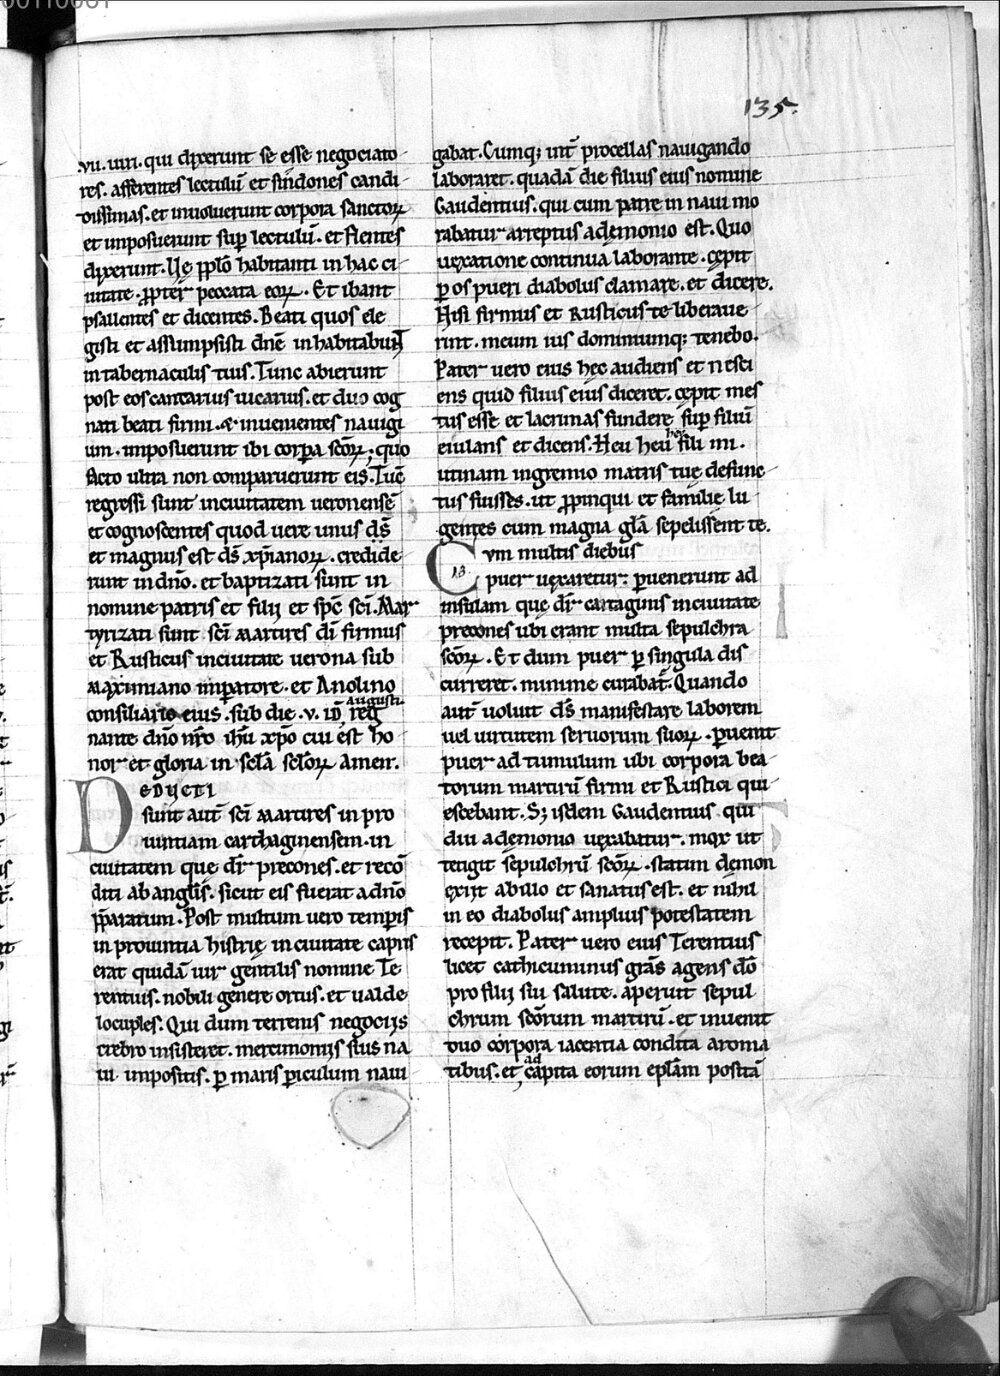 135.
.vii. uiri. qui dixerunt se esse negociato
res. afferentes lectulū et sindones candi
dissimas. et inuoluerunt corpora sanctoꝝ
et inposuerunt sup̄ lectulū. et flentes
dixerunt. Ue pp̄lo habitanti in hac ci
uitate. ꝓpter peccata eoꝝ. Et ibant
psallentes et dicentes. Beati quos ele
gisti et assumpsisti dn̄e inhabitabunt
in tabernaculis tuis. Tunc abierunt
post eos cancarius uicarius. et duo cog
nati beati firmi. & inuenientes nauigi
um. inposuerunt ibi corpa sc̄oꝝ; quo
facto ultra non comparuerunt eis. Tūc
regressi sunt in ciuitatem ueronensē
et cognoscentes quod uere unus d̄s
et magnus est d̄s xp̄ianoꝝ. credide
runt in dn̄o. et baptizati sunt in
nomine patris et filij et sp̄c sc̄i. Mar
tyrizati sunt sc̄i martires dī firmus
et Rusticus in ciuitate uerona sub
Maximiano imperatore. et Anolino
consiliario eius. sub die. v. id̄ augusti reg
nante dn̄o nr̄o ih̄u xp̄o cui est ho
nor et gloria in sc̄la sc̄loꝝ amen.
DEDUCTI
sunt aut̄ sc̄i martires in pro
uintiam carthaginensem. in
ciuitatem que dr̄ precones. et recō
diti ab angl̄is. sicut eis fuerat a dn̄o
p̄paratum. Post multum uero temp̄is
in prouintia histrię in ciuitate capris
erat quidā uir gentilis nomine Te
rentius. nobili genere ortus. et ualde
locuples. Qui dum terrenis negociis
crebro insisteret. mercimonijs suis na
ui inpositis. ꝑ maris ꝑiculum naui
gabat. Cumq; int̄ procellas nauigando
laboraret. quadā die filius eius nomine
Gaudentius. qui cum patre in naui mo
rabatur arreptus a demonio est. Quo
uexatione continua laborante. cepit
ꝑ os pueri diabolus clamare. et dicere.
Nisi firmus et Rusticus te liberaue
rint. meum ius dominiumq; tenebo.
Pater uero eius hęc audiens et nesci
ens quid filius eius diceret. cępit mes
tus esse et lacrimas fundere sup̄ filiū
eiulans et dicens. Heu heu heu fili mi.
utinam in gremio matris tuę defunc
tus fuisses. ut ꝓpinqui et familie lu
gentes cum magna gl̄a sepelissent te.
Cvm multis diebus
18.
puer uexaretur: ꝑuenerunt ad
insulam que dr̄ cartaginis in ciuitate
precones ubi erant multa sepulchra
sc̄oꝝ. Et dum puer ꝑ singula dis
curreret. minime curabat̄. Quando
aut̄ uoluit d̄s manifestare laborem
uel uirtutem seruorum suoꝝ. ꝑuenit
puer ad tumulum ubi corpora bea
torum martirū firmi et Rustici qui
escebant. S; isdem Gaudentius qui
diu a demonio uexabatur. mox ut
tetigit sepulchrū sc̄oꝝ. statim demon
exijt ab illo et sanatus est. et nihil
in eo diabolus amplius potestatem
recepit. Pater uero eius Terentius
licet cathicuminus gr̄as agens d̄o
pro filij sui salute. aperuit sepul
chrum sc̄orum martirū. et inuenit
duo corpora iacentia condita aroma
tibus. et ad capita eorum epl̄am positā